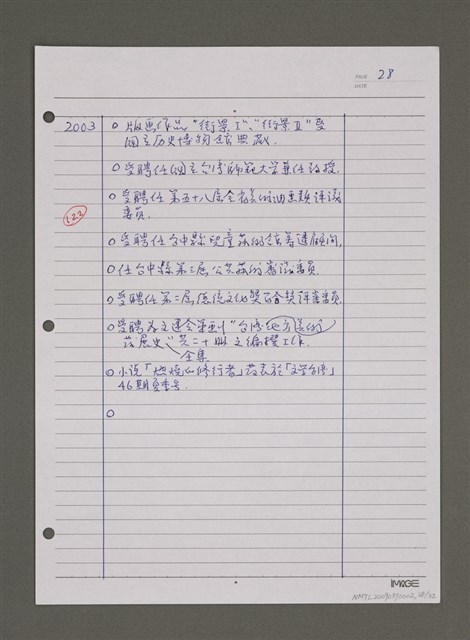 PAGE 28
DATE
2003
○ 版画作品"街景Ⅰ"、"街景Ⅱ"受
國立历史博物館典藏.
○受聘任國立台灣師範大学兼任教授.
○受聘任第五十八屆全省美術油画類評議
委員.
122
○受聘任台中縣兒童美術館籌建顧問.
○任台中縣第三屆公共藝術審議委員.
○受聘任第二屆 文化獎百合獎評審委員.
○受聘為文建会策劃"台灣地方美術
發展史"共二十冊之編撰工作.
全集
○小说「燃燒的修行者」發表於「文学台灣」
46期夏季号.
○
IMAGE
NMTL20090890002